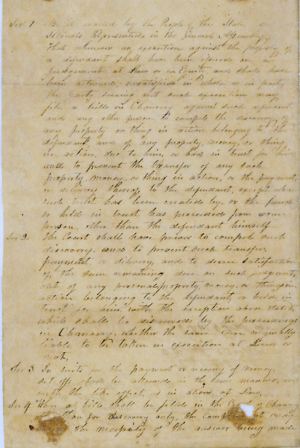 Sec 1 Be it enacted by the People of the State of
Illinois Represented in the General Assembly
That whenever an execution against the property of
a defendant shall have been issued on a
judgment at Law or in Equity and shall have
been returned unsatisfied in whole or in part
the party suing out such execution may
file a bill in Chancery against such defendant
and any other person to compel the discovery of
any property or thing in action belonging to the
defendant and of any property money or thing
in action due to him or held in trust for him
and to prevent the transfer of such
property money or thing in action or the payment
or delivery thereof to the defendant except when
such trust has been created by or the fund
so held in trust has proceeded from some
person other than the defendant himself
Sec 2 The Court shall have power to compel such
discovery and to prevent such transfer
payment or delivery and to decree satisfaction
of the sum remaining due on such judgment
out of any personal property money or things in
action belonging to the defendant or held in
trust for him with the exception above stated
which shall be discovered by the proceedings
in Chancery whether the same were originally
liable to be taken in execution at Law or
not
Sec 3 In suits the payment or recovery of money
set offs shall be allowed in the same manner and
with the like effect as in at Law
Sec 4 When a bill shall be filed in the of Chancery
than for discovery only, the Complainant may
the necessity of the answer being made